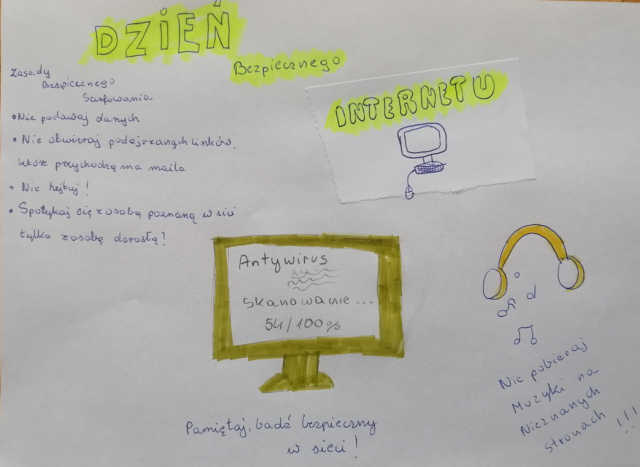 DZIEŃ
Bezpiecznego
INTERNETU
Zasady
Bezpiecznego
Surfowania
• Nie podawaj danych
• Nie otwieraj podejrzanych linków,
które przychodzą na maila
• Nie hejtuj!
• Spotykaj się z osobą poznaną w sieci
tylko z osobą dorosłą!
Antywirus
skanowanie...
54/100%
Nie pobieraj
Muzyki na
Nieznanych
stronach !!!
Pamiętaj, bądź bezpieczny
w sieci!